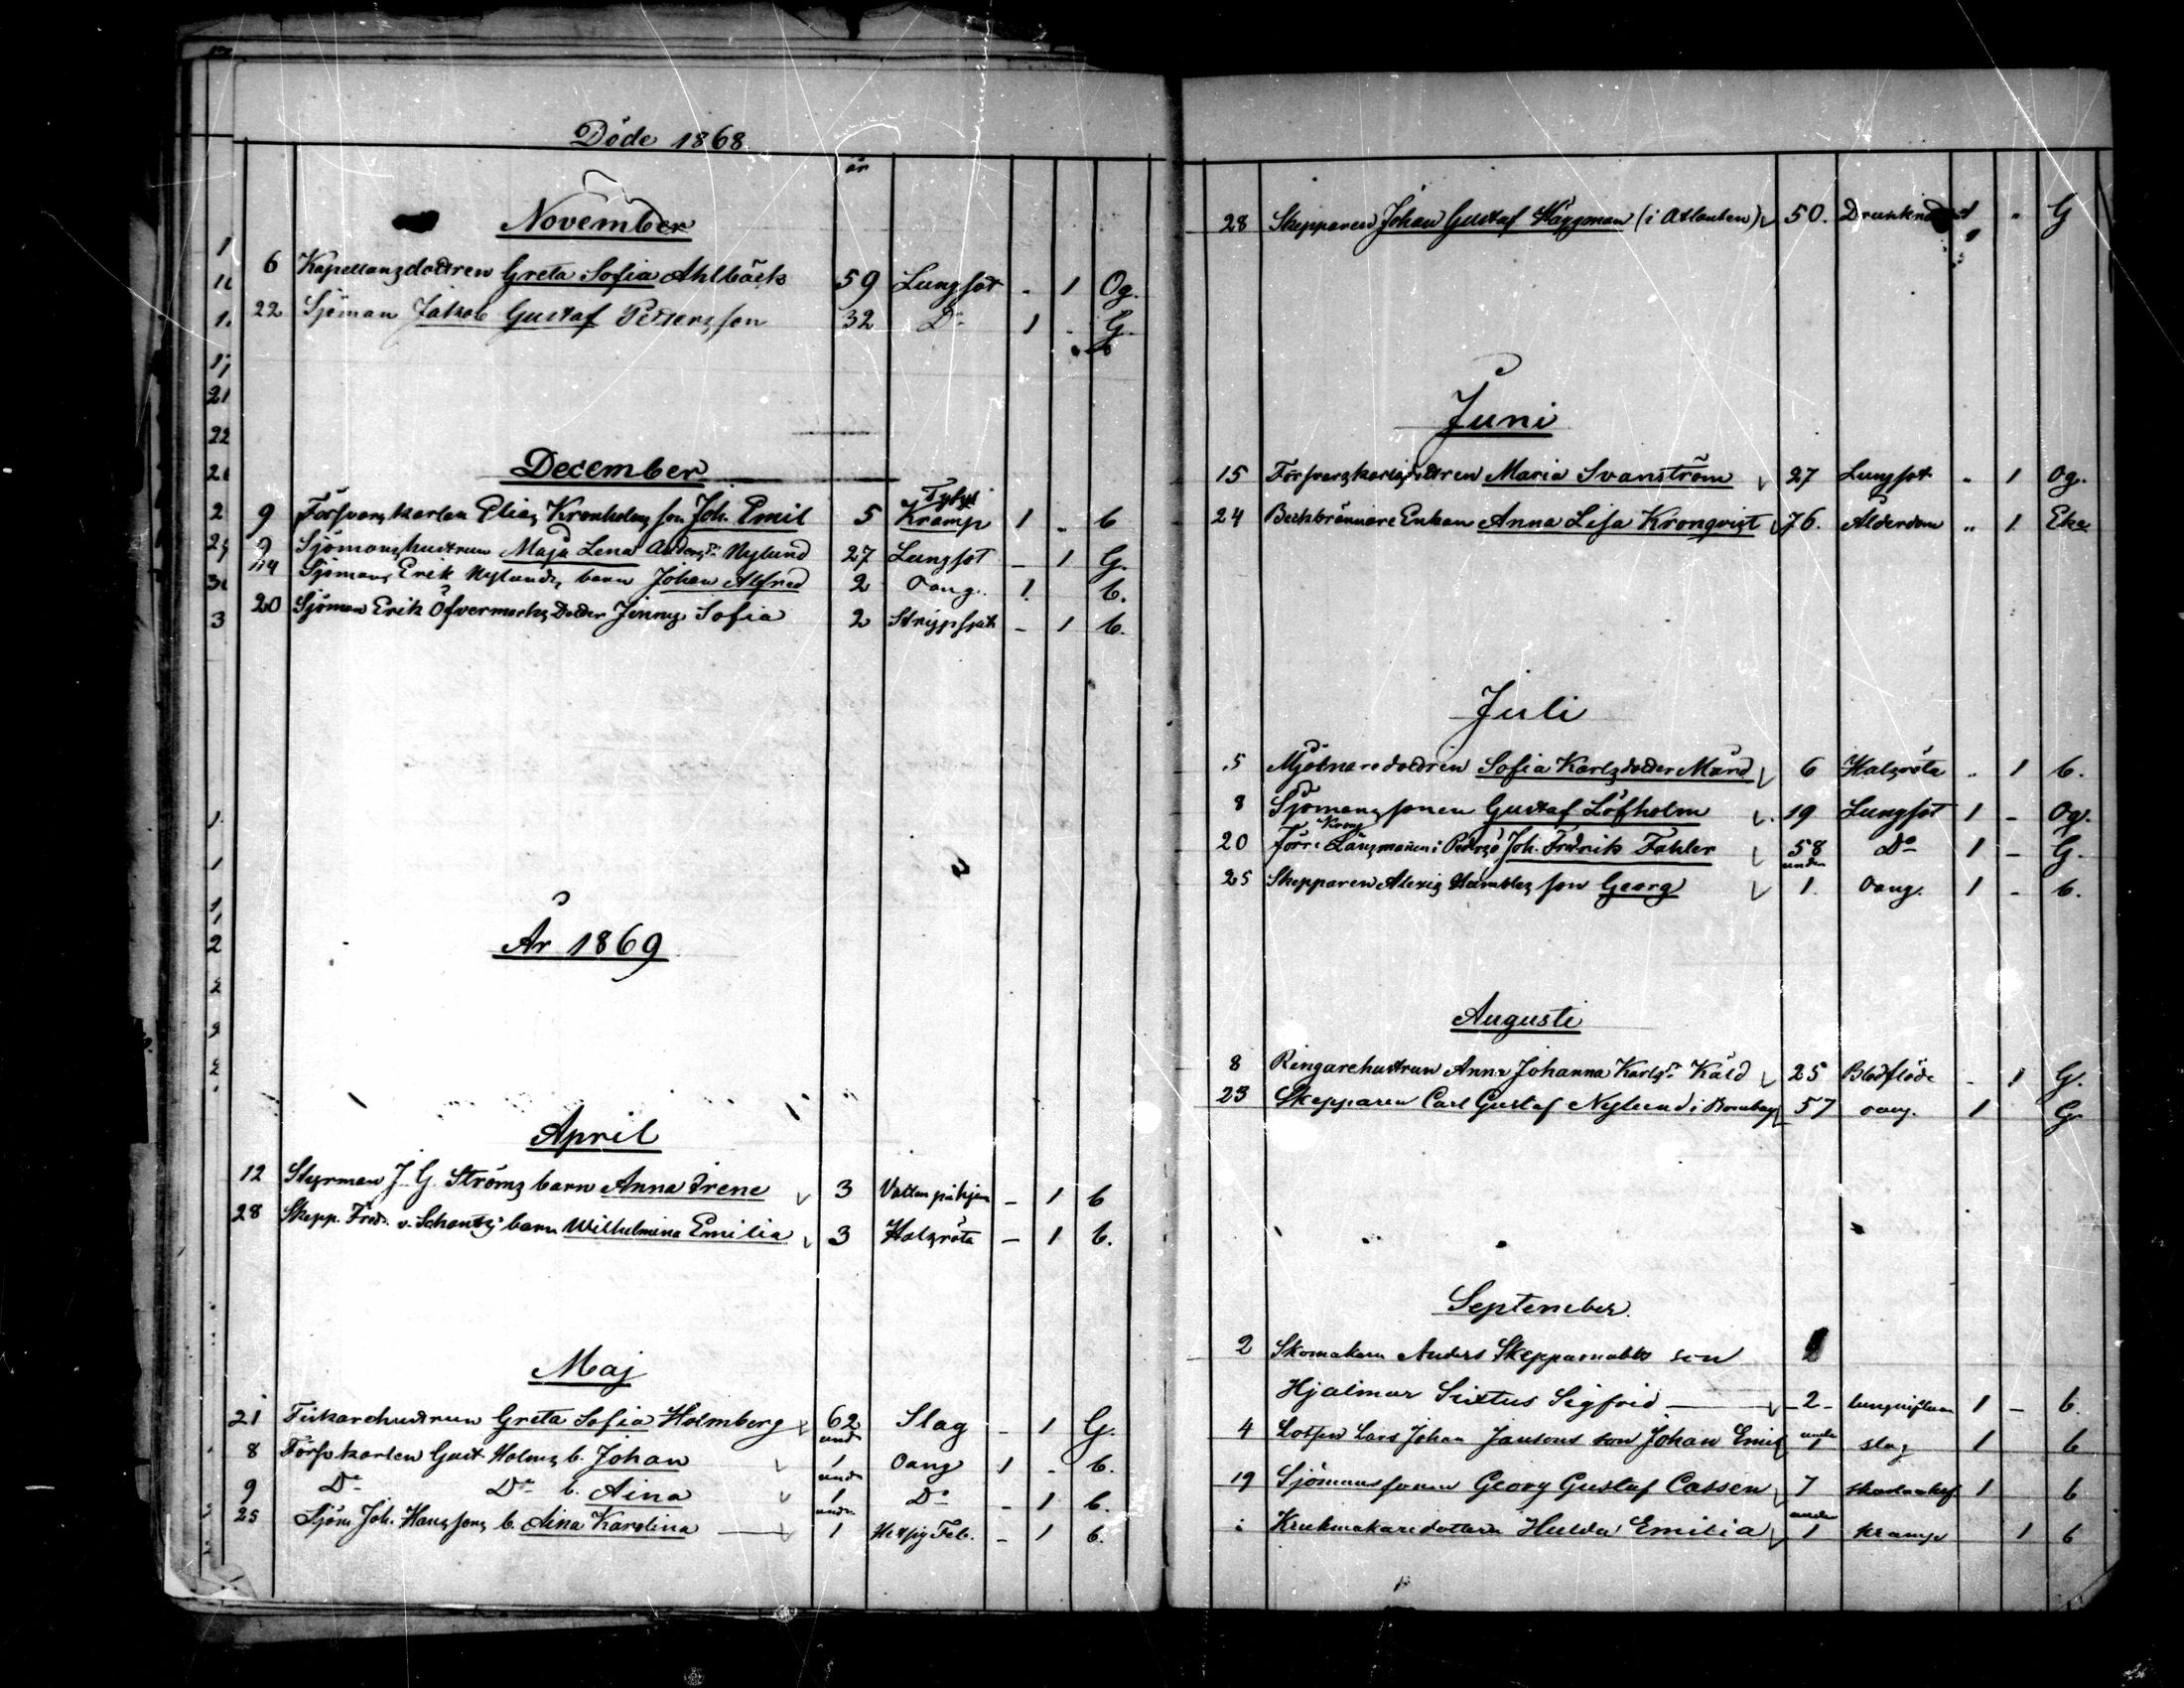 Döde 1868
år
November
6 Kapellansdottren Greta Sofia Ahlbäck 59 Lungsot - 1 Og.
22 Sjöman Jakob Gustaf Pettersson 32 Do 1 - G.
December
Tyfus
9 Försvarskarlen Elias Kronholms son Joh. Emil 5 Kramp 1 - b
9 Sjömanshustrun Maja Lena Andersdr Nylund 27 Lungsot - 1 G.
14 Sjömans Erik Nylunds barn Johan Alfred 2 Oang. 1 b.
20 Sjöman Erik Öfvermarks Dotter Jenny Sofia 2 Strypsjuk - 1 b.
År 1869
April
12 Styrman J. G. Ströms barn Anna Irene 3 Vatten på hjern - 1 b
28 Skepp. Fred. v. Schantz' barn Wilhelmina Emilia 3 Halsröta - 1 b.
Maj
21 Fiskarehustrun Greta Sofia Holmberg 62 Slag - 1 G.
8 Försv.karlen Gust. Holms b. Johan under 1 Oang 1 - b.
9 Do Do b. Aina under 1 Do - 1 b.
25 Sjöm. Joh. Hanssons b. Aina Karolina under 1 Hetsig Feb. - 1 b.
28 Skepparen Johan Gustaf Häggman (i Atlanten) 50. Drunknad 1 " G
Juni
15 Försvarskarlsdottren Maria Svanström 27 Lungsot " 1 Og.
24 Beckbrännare Enkan Anna Lisa Kronqvist 76. Ålderdom " 1 Eka
Juli
5 Mjölnaredottren Sofia Karlsdotter Mård 6 Halsröta " 1 b.
8 Sjömanssonen Gustaf Löfholm 19 Lungsot 1 - Og.
Krono
20 Förre Länsmannen i Pedersö Joh. Fredrik Fahler 58 Do 1 - G.
25 Skepparen Alexis Hambles son Georg under 1. Oang. 1 - b.
Augusti
8 Ringarehustrun Anna Johanna Karlsdr Käld 25 Blodflöde - 1 G.
23 Skepparen Carl Gustaf Nylund i Bombay 57 oang. 1 G
September
2 Skomakaren Anders Skepparnabbs son
Hjalmar Sixtus Sigfrid - 2 - lunginflam 1 - b.
4 Lotsen Lars Johan Jansons son Johan Emil under 1 slag 1 b
19 Sjömanssonen Georg Gustaf Cassén 7 1 b
Krukmakaredottern Hulda Emilia under 1 kramp 1 b